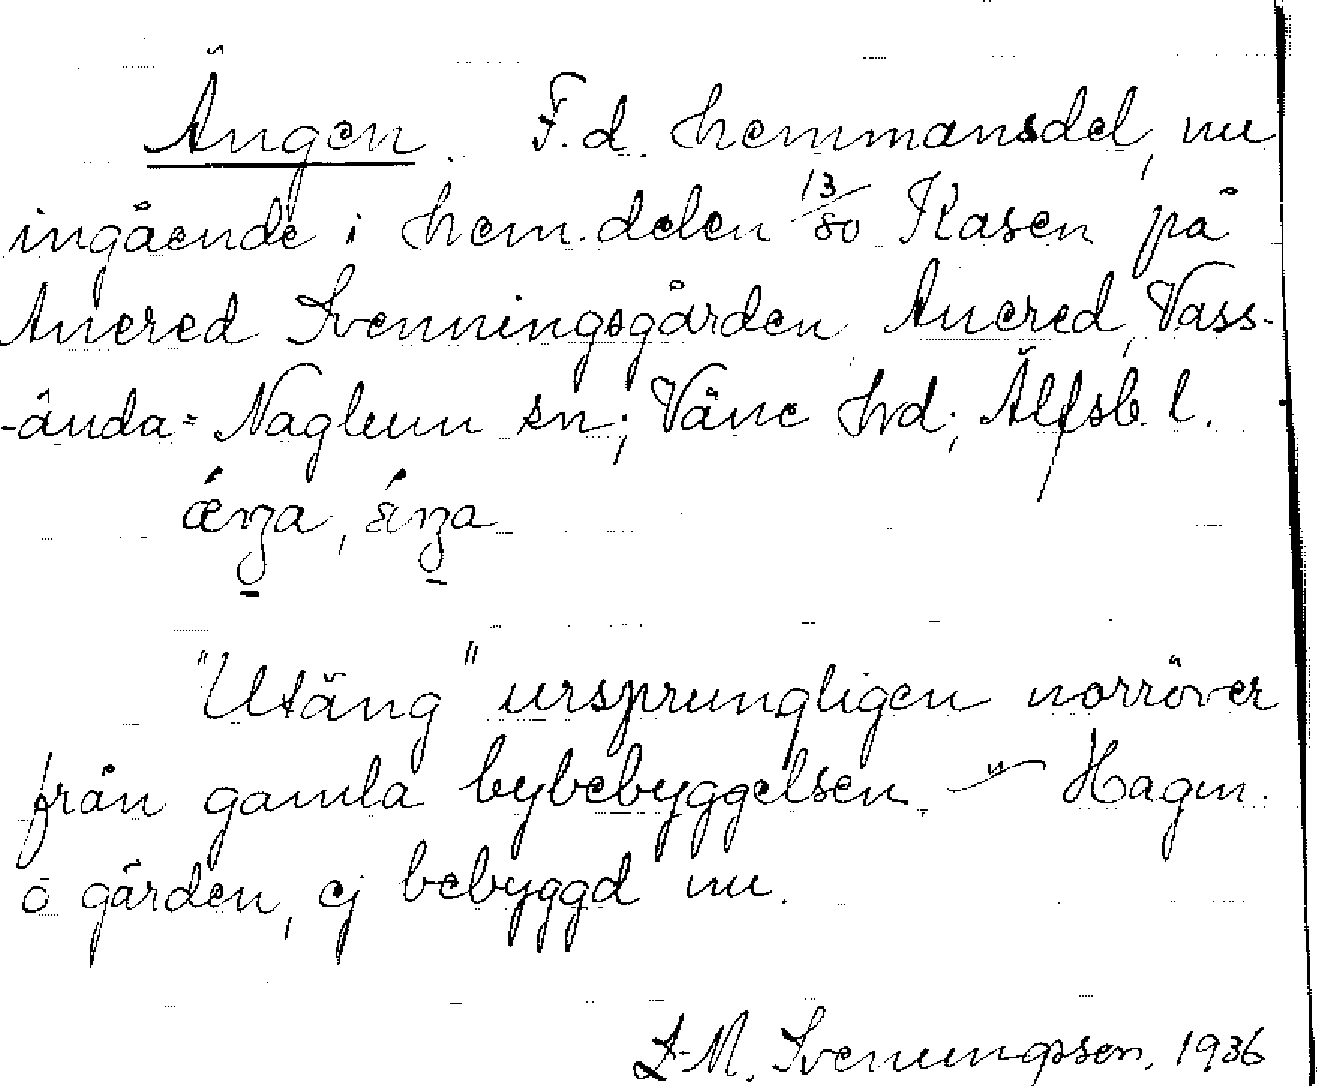 Ängen. F.d. hemmansdel, nu
ingående i hem.delen 13/80 Kasen på
Anered Svenningsgården, Anered, Vass-
-ända-Naglum sn; Väne hd; Älfsb. l.
"Utäng" ursprungligen norröver
från gamla bybebyggelsen. Hagen.
o gården, ej bebyggd nu.
L-M. Svenungsson, 1936